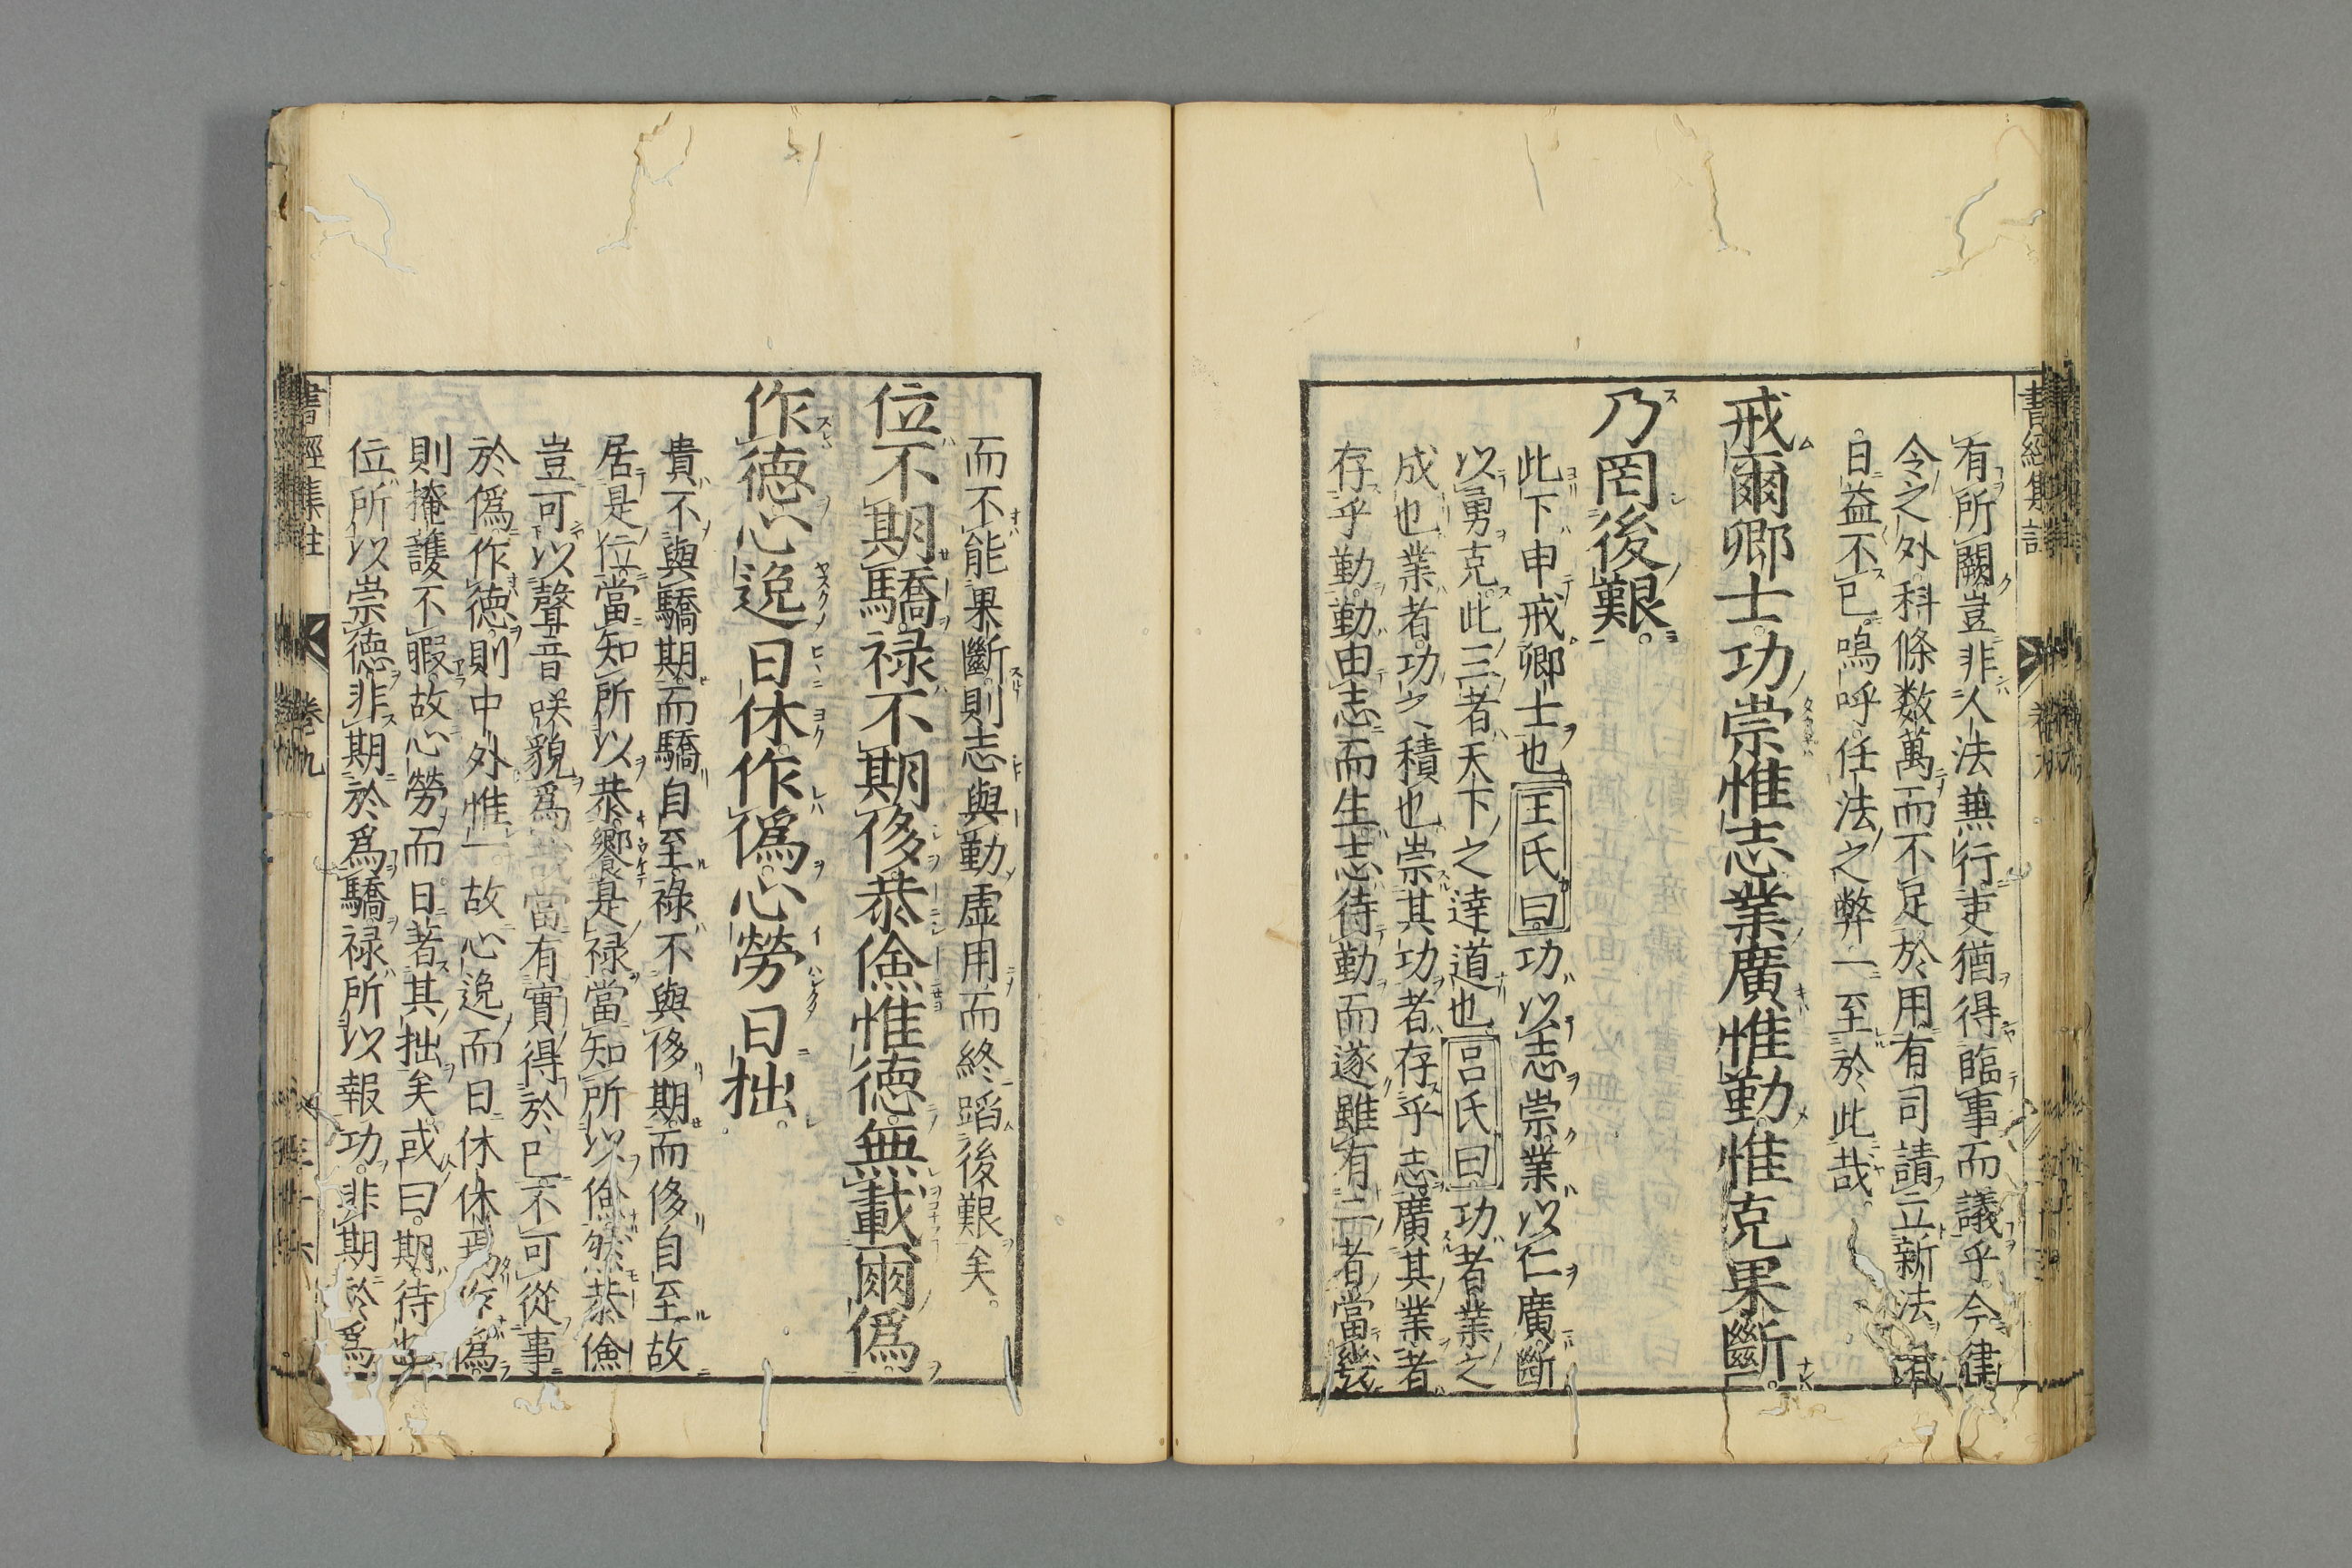 書經集註
有所闕豈非人法兼行吏猶得臨事而議乎今律
令之外科條数萬而不足於用有司請立新法
日益不已嗚呼任法之弊一至於此哉
戒爾卿士功崇惟志業廣惟勤惟克果斷
乃罔後艱
此下申戒卿士也王氏曰功以志崇業以仁廣斷
以勇克此三者天下之達道也呂氏曰功者業之
成也業者功之積也崇其功者存乎志廣其業者
存乎勤勤由志而生志待勤而遂雖有二者當幾
而不能果斷則志與勤虛用而終蹈後艱矣
位不期驕禄不期侈恭儉惟徳無載爾僞
作徳心逸日休作僞心勞日拙
貴不與驕期而驕自至祿不與侈期而侈自至故
居是位當知所以恭饗是禄當知所以儉然恭儉
豈可以聲音咲貌爲當有實得於已不可從事
於僞作徳則中外惟一故心逸而日休休焉作僞
則掩護不暇故心勞而日著其拙矣或曰期待也
位所以崇徳非期於爲驕禄所以報功非期於爲
書經集註 卷九 三十六